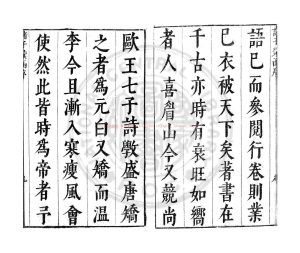 語已而參閱行卷則業
已衣被天下矣著書在
千古亦時有衰旺如嚮
者人喜眉山今又競尚
歐王七子詩斆盛唐矯
之者為元白又矯而溫
李今且漸入寒瘦風會
使然此皆時為帝者